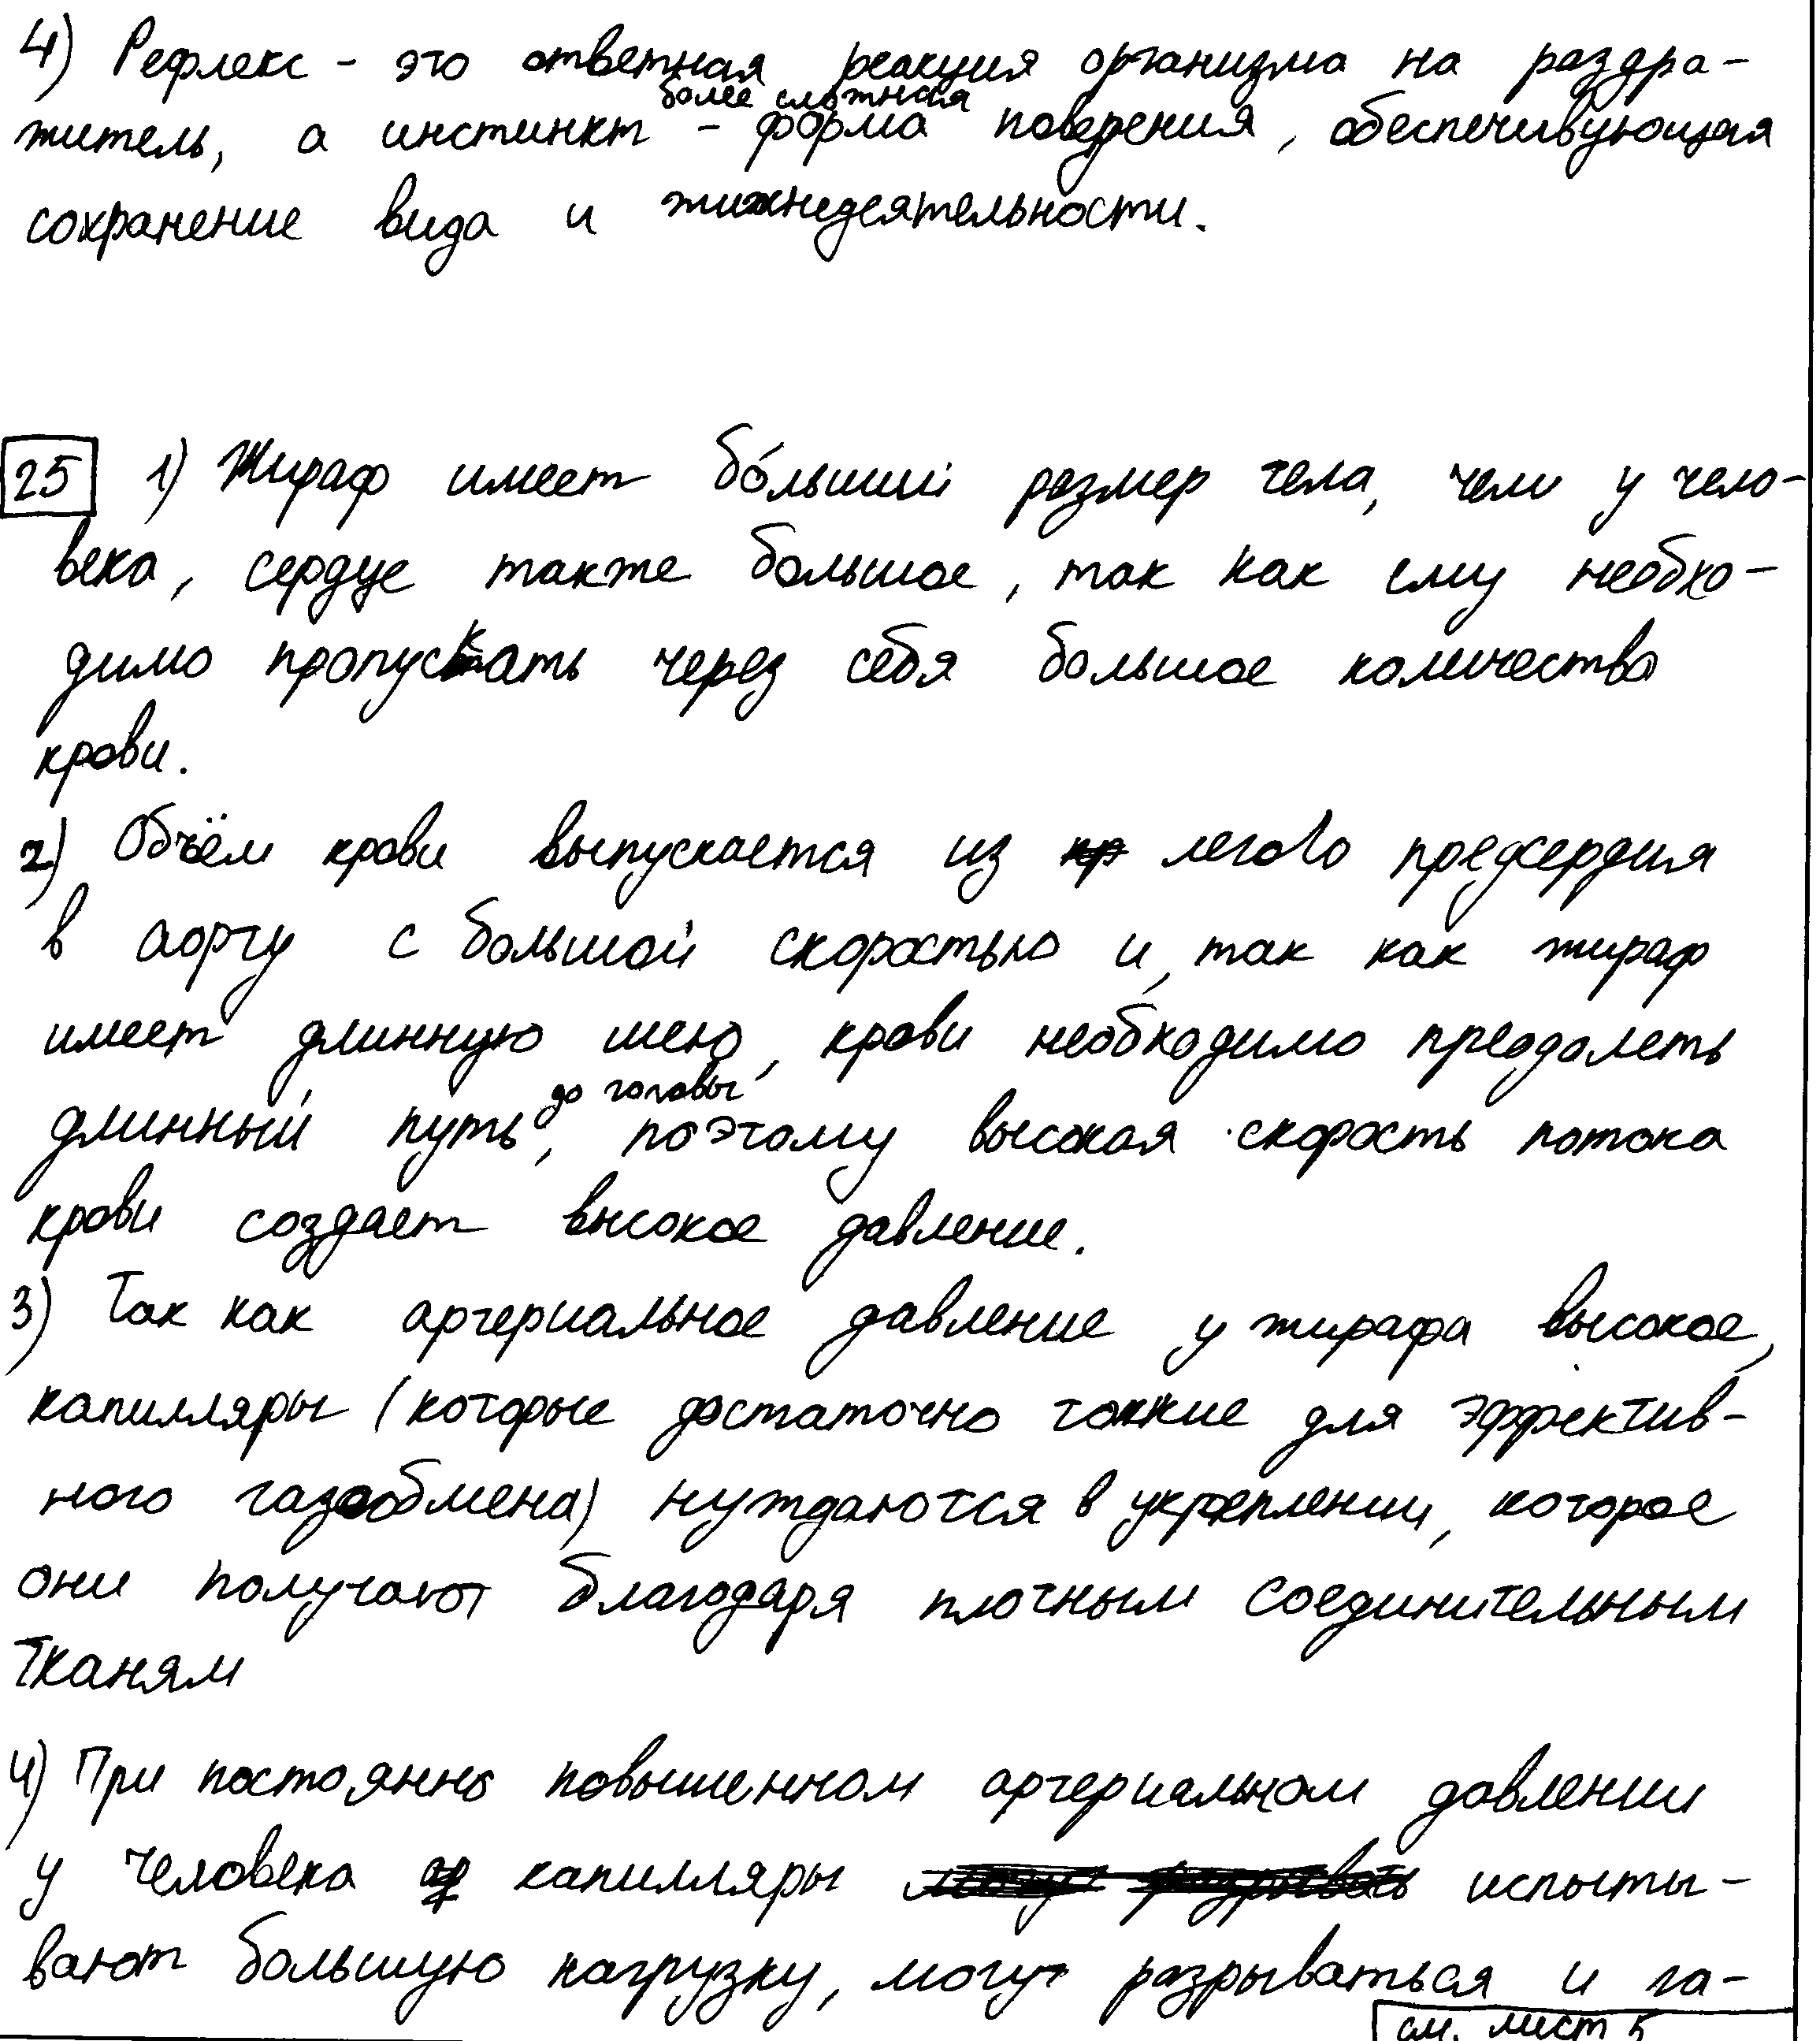 4) Рефлекс - это ответная реакция организма на раздра-
более сложная
житель, а инстинкт - форма поведения, обеспечивующая
сохранение вида и жизнедеятельности.
25 1) Жираф имеет бо́льший размер тела, чем у чело-
века, сердце также большое, так как ему необхо-
димо пропускать через себя большое количество
крови.
2) Объём крови выпускается из легого предсердия
в аорту с большой скоростью и, так как жираф
имеет длинную шею, крови необходимо преодолеть
до головы
длинный путь, поэтому высокая скорость потока
крови создает высокое давление.
3) Так как артериальное давление у жирафа высокое,
капилляры (которые достаточно тонкие для эффектив-
ного газообмена) нуждаются в укреплении, которое
они получают благодаря плотным соединительным
тканям
4) При постоянно повышенном артериальном давлении
у человека капилляры испыты-
вают большую нагрузку, могут разрываться и га-
см. лист 5